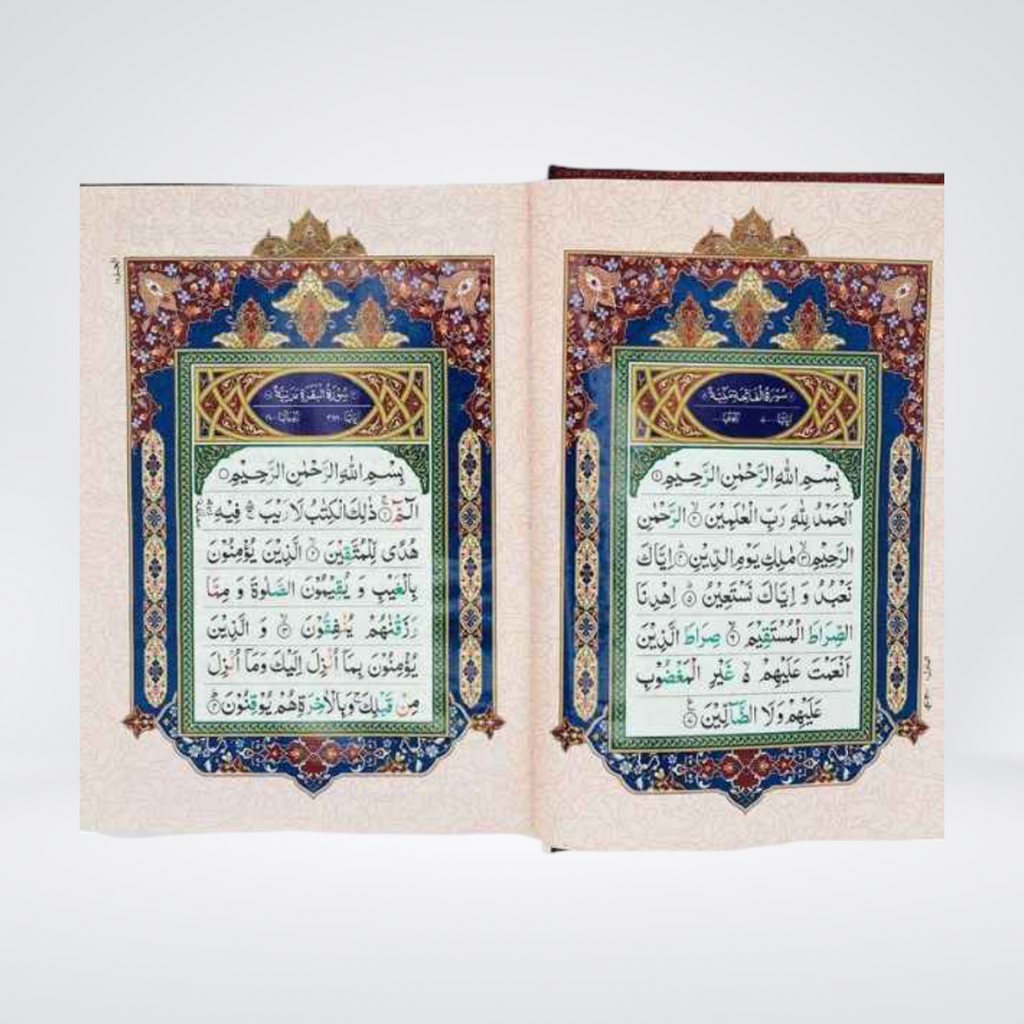 سُوْرَةُ الْفَاتِحَةِ مَكِّيَّةٌ
بِسْمِ اللّٰهِ الرَّحْمٰنِ الرَّحِيْمِ ۝۱
اَلْحَمْدُ لِلّٰهِ رَبِّ الْعٰلَمِيْنَ ۝۲ الرَّحْمٰنِ
الرَّحِيْمِ ۝۳ مٰلِكِ يَوْمِ الدِّيْنِ ۝۴ اِيَّاكَ
نَعْبُدُ وَ اِيَّاكَ نَسْتَعِيْنُ ۝۵ اِهْدِنَا
الصِّرَاطَ الْمُسْتَقِيْمَ ۝۶ صِرَاطَ الَّذِيْنَ
اَنْعَمْتَ عَلَيْهِمْ ۙ۬ غَيْرِ الْمَغْضُوْبِ
عَلَيْهِمْ وَلَا الضَّآلِّيْنَ
سُوْرَةُ الْبَقَرَةِ مَدَنِيَّةٌ
بِسْمِ اللّٰهِ الرَّحْمٰنِ الرَّحِيْمِ
الٓمّٓ ۝۱ ذٰلِكَ الْكِتٰبُ لَا رَيْبَ ۛ فِيْهِ ۛ
هُدًى لِّلْمُتَّقِيْنَ ۝۲ الَّذِيْنَ يُؤْمِنُوْنَ
بِالْغَيْبِ وَ يُقِيْمُوْنَ الصَّلٰوةَ وَ مِمَّا
رَزَقْنٰهُمْ يُنْفِقُوْنَ ۝۳ وَ الَّذِيْنَ
يُؤْمِنُوْنَ بِمَآ اُنْزِلَ اِلَيْكَ وَمَآ اُنْزِلَ
مِنْ قَبْلِكَ ۚ وَبِالْاٰخِرَةِ هُمْ يُوْقِنُوْنَ ۝۴